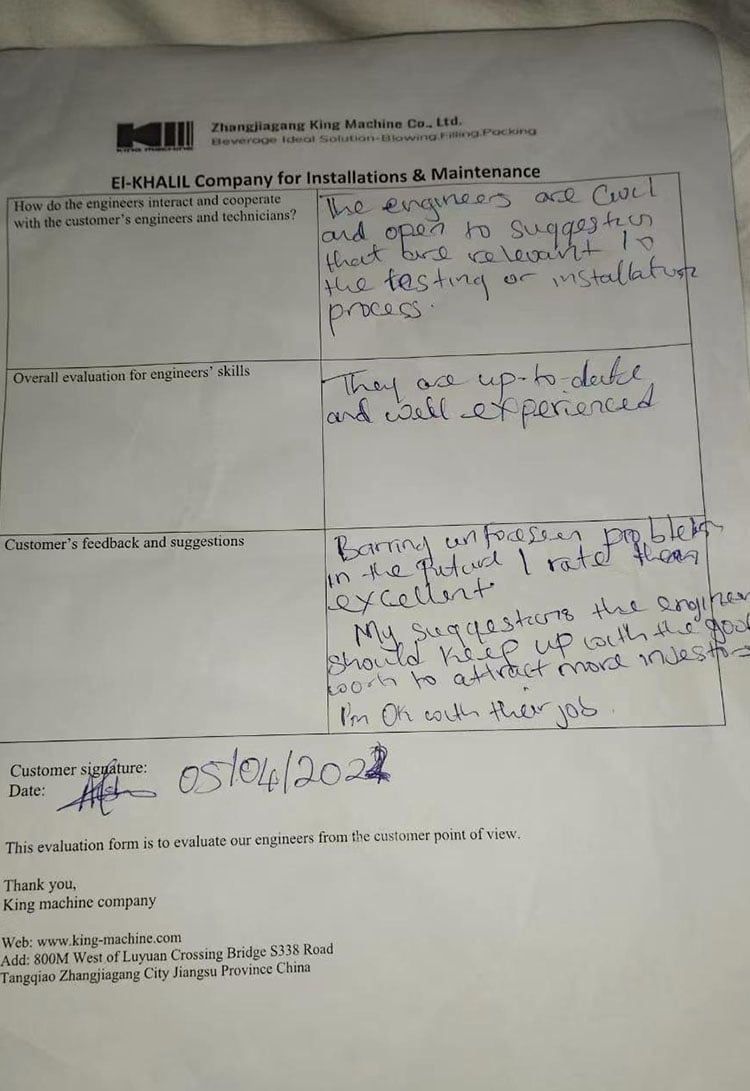 KING MACHINE
Zhangjiagang King Machine Co., Ltd.
Beverage Ideal Solution-Blowing.Filling.Packing
El-KHALIL Company for Installations & Maintenance
How do the engineers interact and cooperate
with the customer's engineers and technicians?
The engineers are Civil
and open to suggestion
that are relevant to
the testing or installation
process.
Overall evaluation for engineers' skills
They are up-to-date
and well experienced
Customer's feedback and suggestions
Barring unforeseen problem
in the future I rate them
excellent
My suggestions the engineer
should keep up with the good
work to attract more investors
I'm Ok with their job.
Customer signature:
Date:
05/04/202
This evaluation form is to evaluate our engineers from the customer point of view.
Thank you,
King machine company
Web: www.king-machine.com
Add: 800M West of Luyuan Crossing Bridge S338 Road
Tangqiao Zhangjiagang City Jiangsu Province China